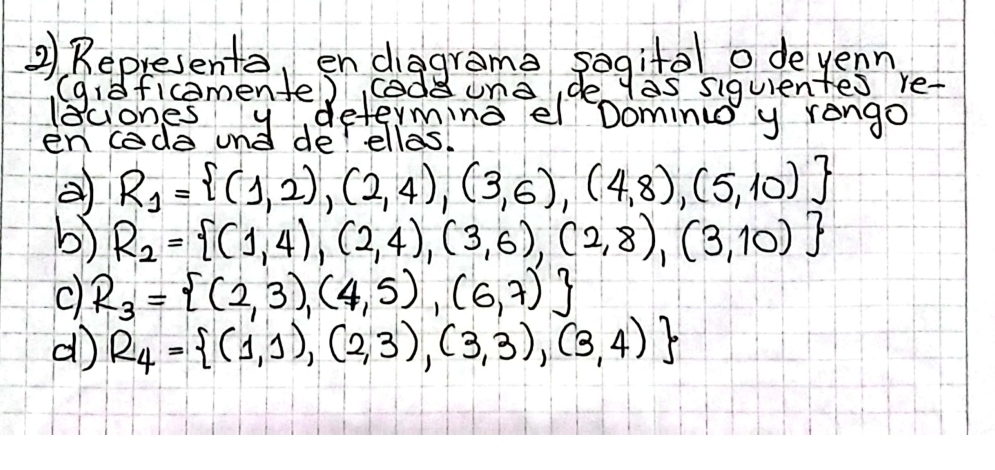 2) Representa, en diagrama sagital o de venn
(gráficamente) cada una de las siguientes re-
laciones y determina el Dominio y rango
en cada una de ellas.
a) R₁ = {(1,2), (2,4), (3,6), (4,8), (5,10)}
b) R₂ = {(1,4), (2,4), (3,6), (2,8), (3,10)}
c) R₃ = {(2,3), (4,5), (6,7)}
d) R₄ = {(1,1), (2,3), (3,3), (3,4)}